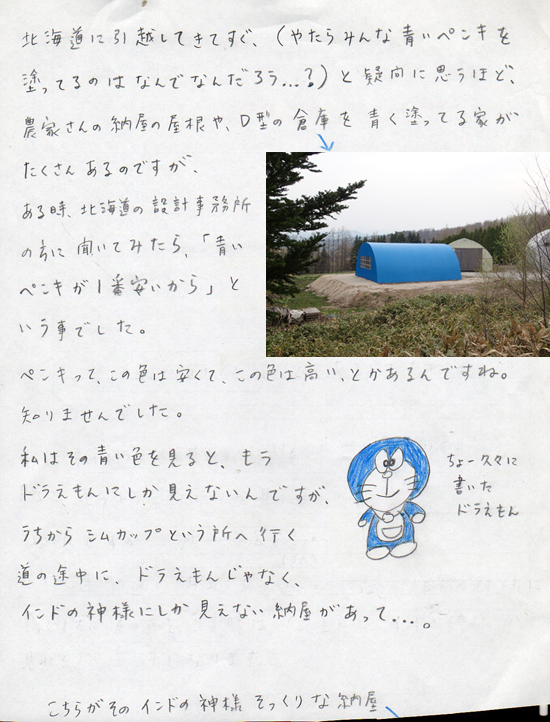 北海道に引越してきてすぐ、(やたらみんな青いペンキを
塗ってるのはなんでなんだろう...?)と疑問に思うほど、
農家さんの納屋の屋根や、D型の倉庫を青く塗ってる家が
たくさんあるのですが、
ある時、北海道の設計事務所
の方に聞いてみたら、「青い
ペンキが1番安いから」と
いう事でした。
ペンキって、この色は安くて、この色は高い、とかあるんですね。
知りませんでした。
私はその青い色を見ると、もう
ドラえもんにしか見えないんですが、
うちからシムカップという所へ行く
道の途中に、ドラえもんじゃなく、
インドの神様にしか見えない納屋があって...。
ちょー久々に
書いた
ドラえもん
こちらがそのインドの神様そっくりな納屋